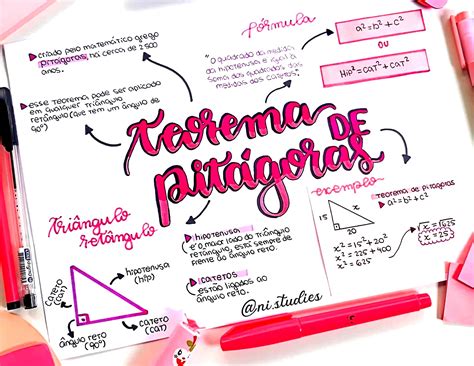 criado pelo matemático grego
pitágoras, há cerca de 2500
anos.
esse teorema pode ser aplicado
em qualquer triângulo
retângulo (que tem um ângulo de
90°)
fórmula
"o quadrado da medida
da hipotenusa é igual à
soma dos quadrados das
medidas dos catetos."
a² = b² + c²
OU
Hip² = cat² + cat²
teorema DE
pitágoras
triângulo
retângulo
hipotenusa
(hip)
cateto
(cat)
ângulo reto
(90°)
cateto
(cat)
hipotenusa
é o maior lado do triângulo
retângulo, está sempre de
frente ao ângulo reto.
catetos
estão ligados ao
ângulo reto.
@ni.studies
exemplo
teorema de pitágoras
a² = b² + c²
15
x
20
x² = 15² + 20²
x² = 225 + 400
x² = 625
x = √625
x = 25